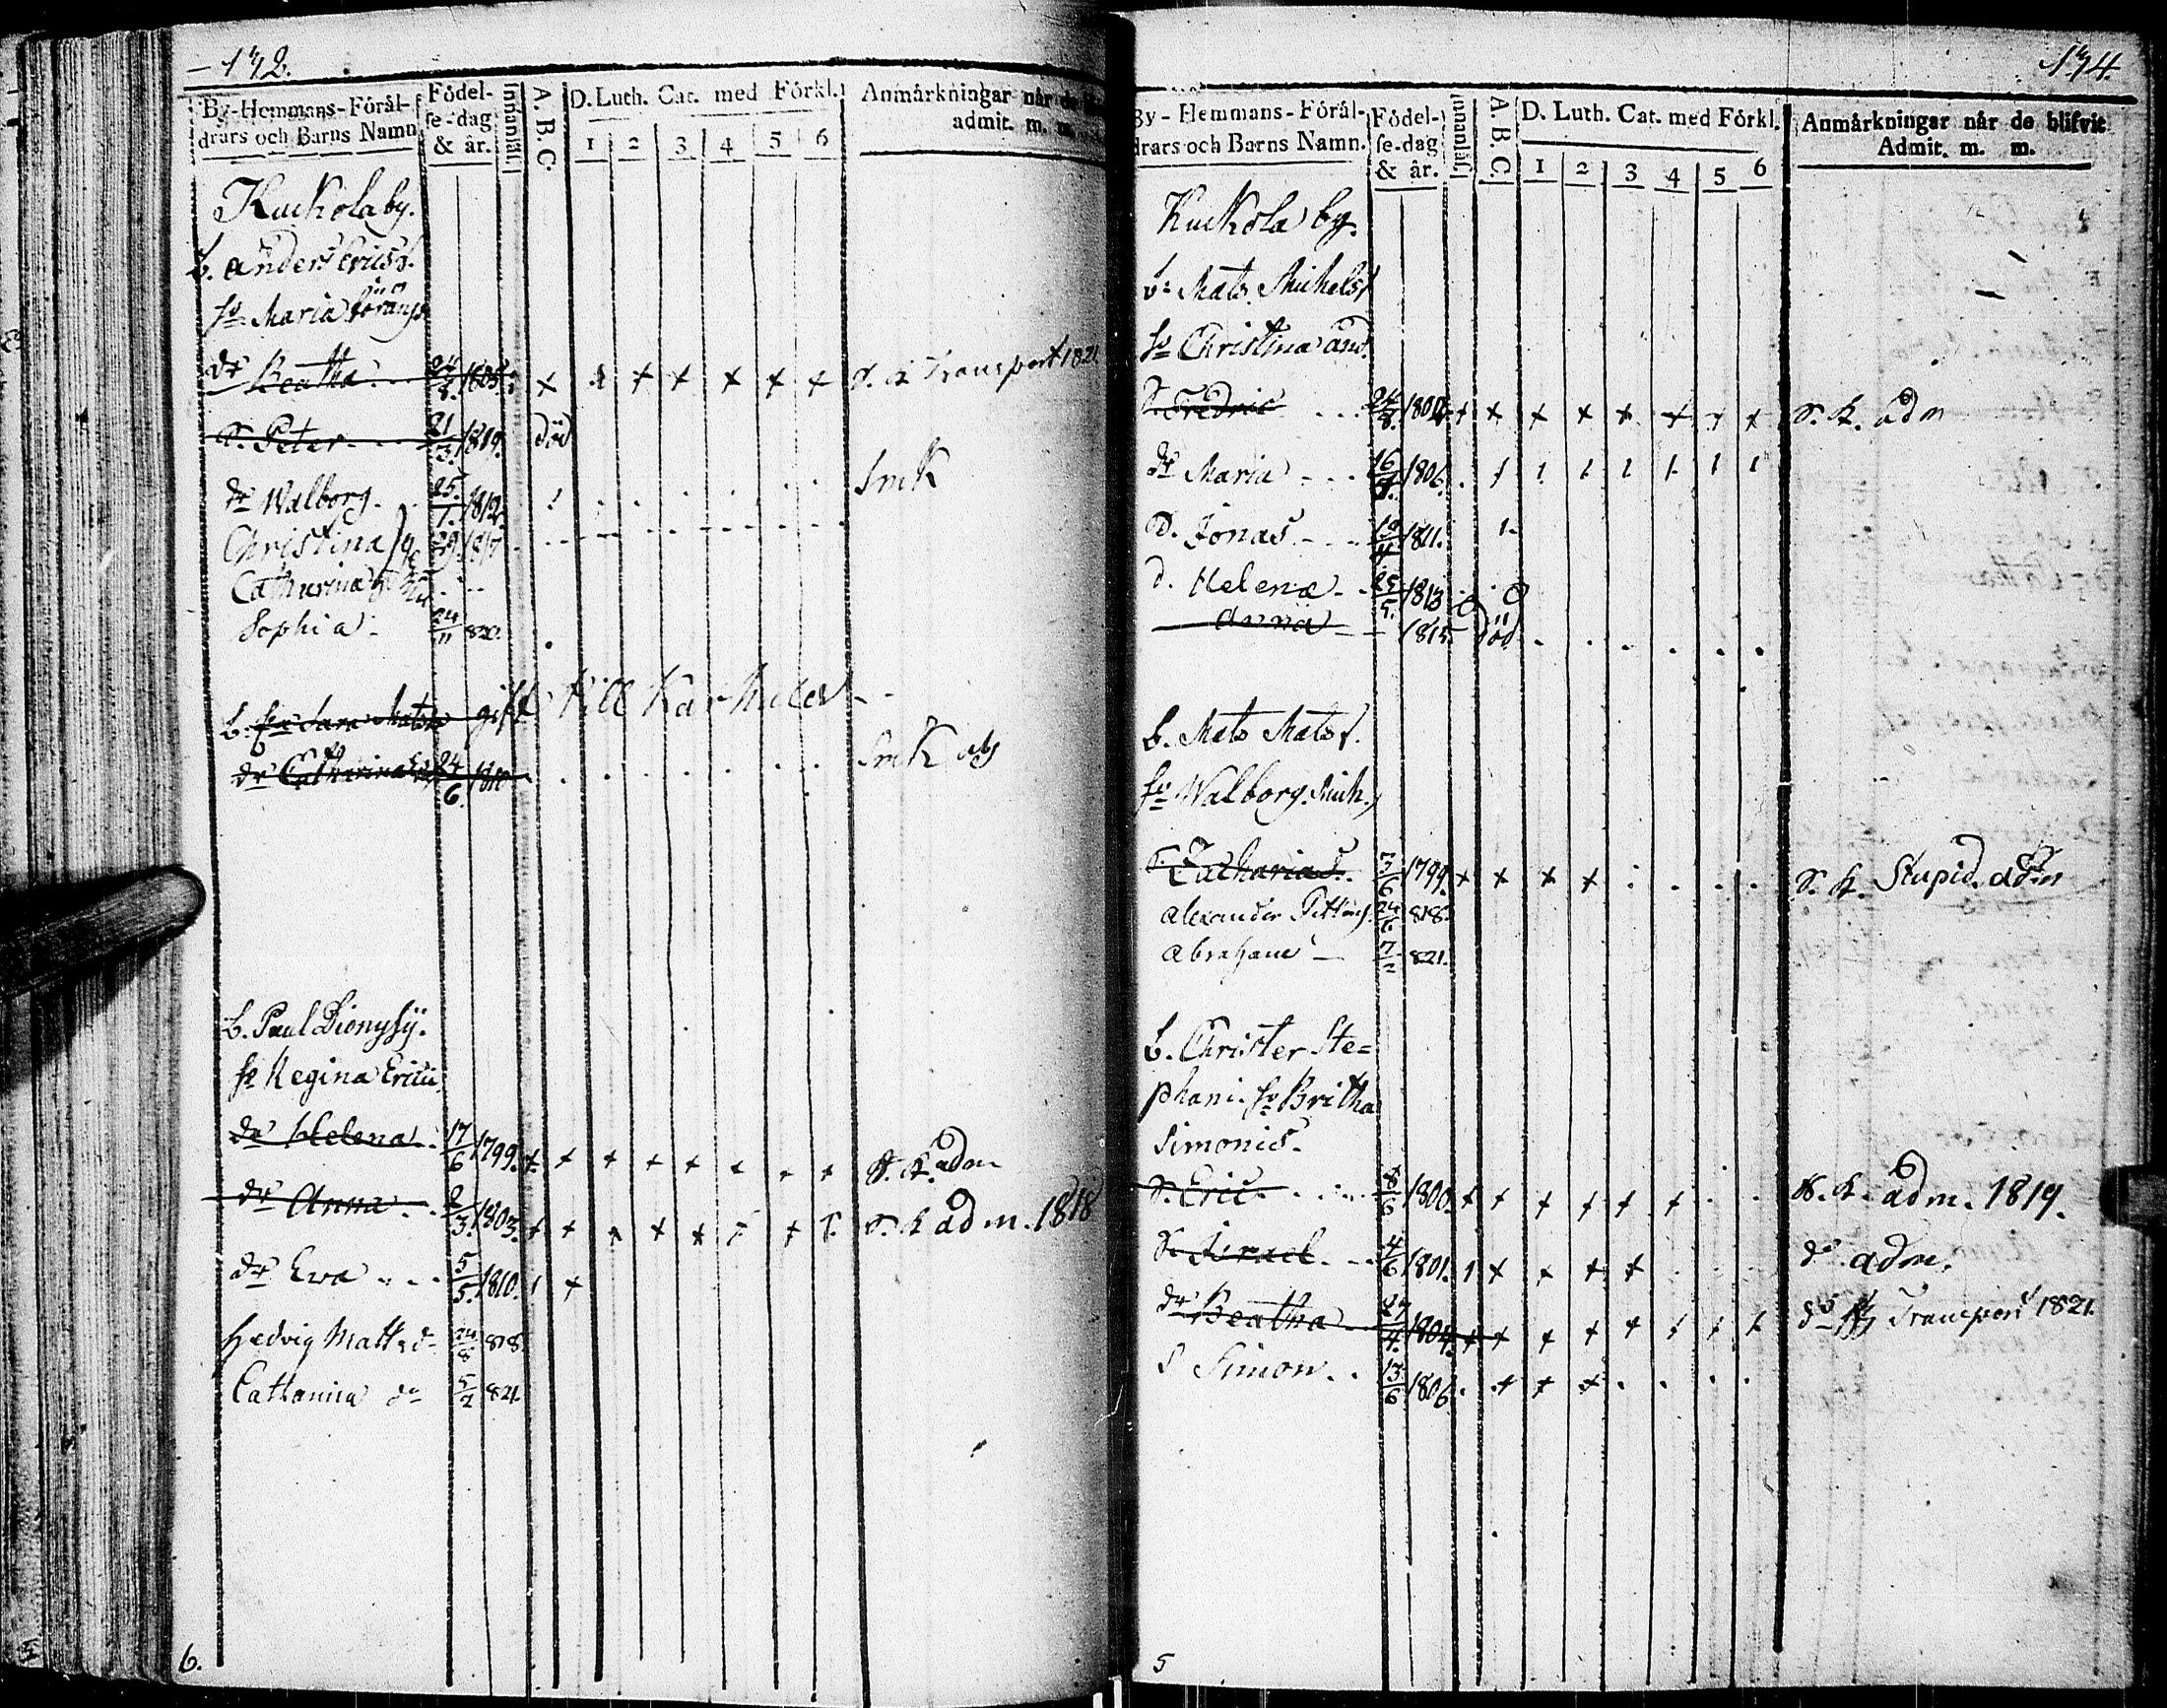 172.
By-Hemmans-Föräl-
drars och Barns Namn
Födel-
se-dag
& år.
Innanläs.
A. B. C.
D. Luth. Cat. med Förkl.
1 2 3 4 5 6
Anmärkningar när de
admit. m. m.
Kuckola by.
b. Anders Ericss.
hu Maria Göransd.
dr Beatha 24/8. 1805. x x x x x x x S. k Transport 1821
S. Peter 21/3. 1819. död
dr Walborg 25/1. 1812. SmK
Christina 1817
Catharina
Sophia 24/11 820.
b. Sara Matsd. gift till Karhiles
dr Catharina 24/6. 1810 SmK
b. Paul Dionysij.
hu Regina Ericii
dr Helena 17/6 1799. x x x x x x x x S. k. adm
dr Anna 2/3. 1803. x x x x x x x S. k adm. 1818
dr Ewa 5/5. 1810. 1 x
Hedvig Mattsdr 24/8 818.
Catharina dr 5/2 821.
6.
174.
By-Hemmans-Föräl-
drars och Barns Namn.
Födel-
se-dag
& år.
Innanläs.
A. B. C.
D. Luth. Cat. med Förkl.
1 2 3 4 5 6
Anmärkningar när de blifvit
Admit. m. m.
Kuckola by.
b. Mats Michelss
hu Christina And.
S. Fredric 24/8. 1804. x x x x x x x x S. k. adm
dr Maria 16/7. 1806. . 1 1 1 1 1 1 1
D. Jonas 19/4 1811. 1.
d. Helena 25/5. 1813
Anna 1815. död
b. Mats Matss.
hu Walborg Mich.
S. Zacharias. 7/6 1799. x x x x . . . . S. k. Stupid. adm
Alexander 24/6 818.
Abraham 7/2 821.
b. Christer Ste=
phani. hu Britha
Simonis.
S. Eric 8/6 1800. x x x x x x . . S. k. adm. 1819.
S. Israel 4/6 1801. 1 x x x x do adm.
dr Beatha 27/4. 1804. x x x x x x x x do Transport 1821.
S Simon 13/6 1806. . x x x . . . .
5